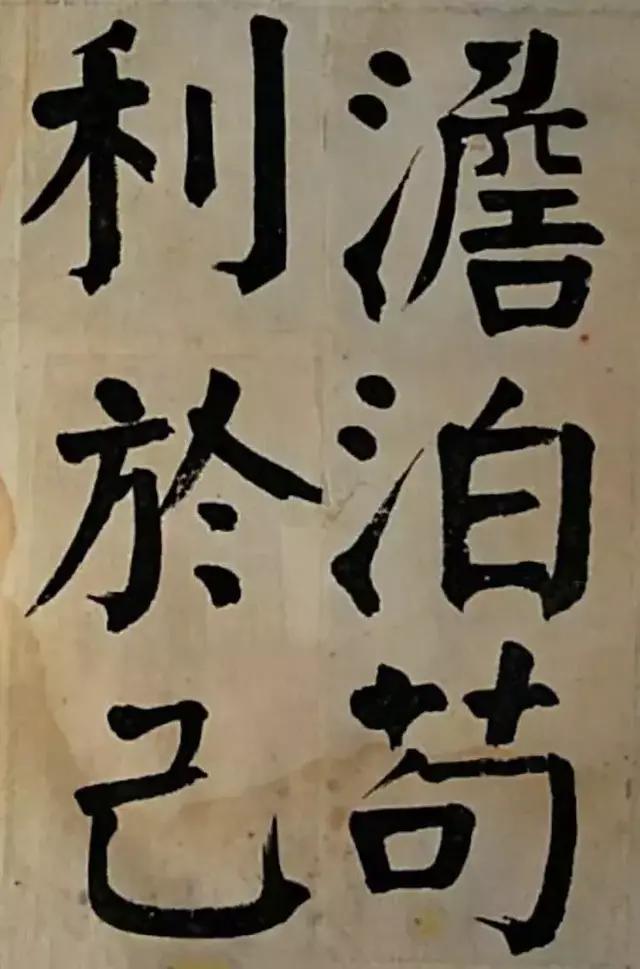 澹泊苟
利於己